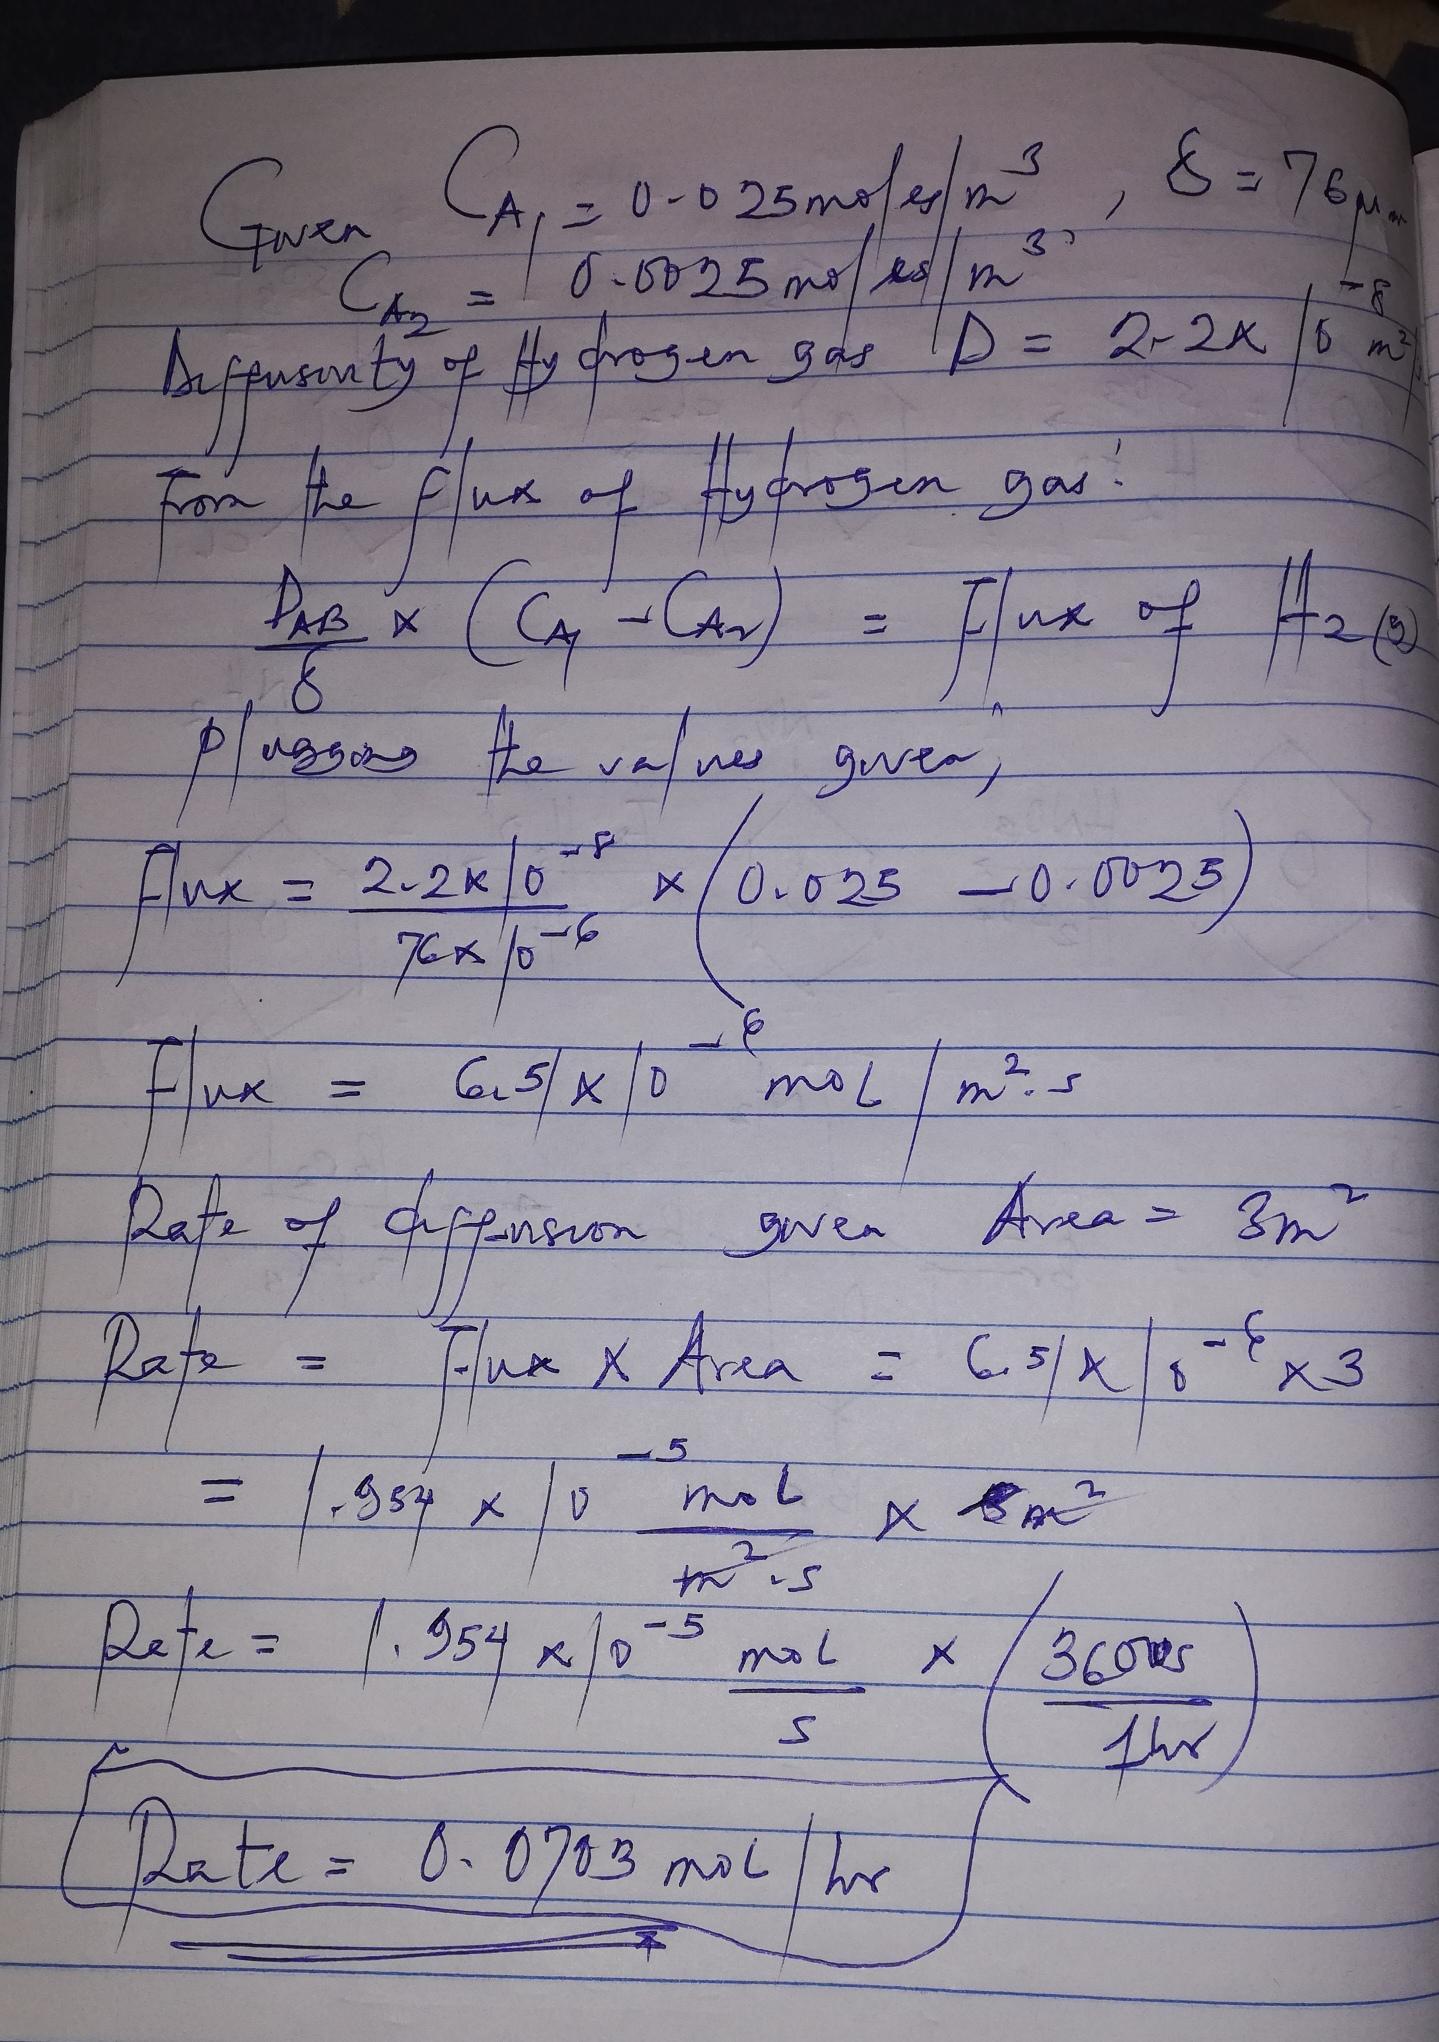 Given CA1 = 0.025 moles/m³, δ = 76μm
CA2 = 0.0025 moles/m³
Diffusivity of Hydrogen gas D = 2.2 x 10⁻⁸ m²/s
From the flux of Hydrogen gas:
DAB/δ x (CA1 - CA2) = Flux of H2(g)
plugging the values given,
Flux = 2.2x10⁻⁸/76x10⁻⁶ x (0.025 - 0.0025)
Flux = 6.51x10⁻⁶ mol/m².s
Rate of diffusion given Area = 3m²
Rate = Flux x Area = 6.51x10⁻⁶ x 3
= 1.954 x 10⁻⁵ mol/m².s x m²
Rate = 1.954 x 10⁻⁵ mol/s x (3600s/1hr)
Rate = 0.0703 mol/hr